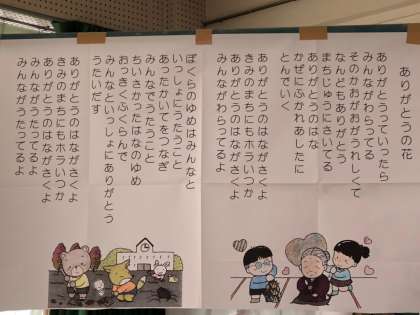 ありがとうの花
ありがとうっていったら
みんながわらってる
そのかおがおがうれしくて
なんどもありがとう
まちじゅうにさいてる
ありがとうのはな
かぜにふかれあしたに
とんでいく
ありがとうのはながさくよ
きみのまちにもホラいつか
ありがとうのはながさくよ
みんながわらってるよ
ぼくらのゆめはみんなと
いっしょにうたうこと
あったかいてをつなぎ
みんなでうたうこと
ちいさかったはなのゆめ
おっきくふくらんで
みんなといっしょにありがとう
うたいだす
ありがとうのはながさくよ
きみのまちにもホラいつか
ありがとうのはながさくよ
みんながうたってるよ
みんながうたってるよ